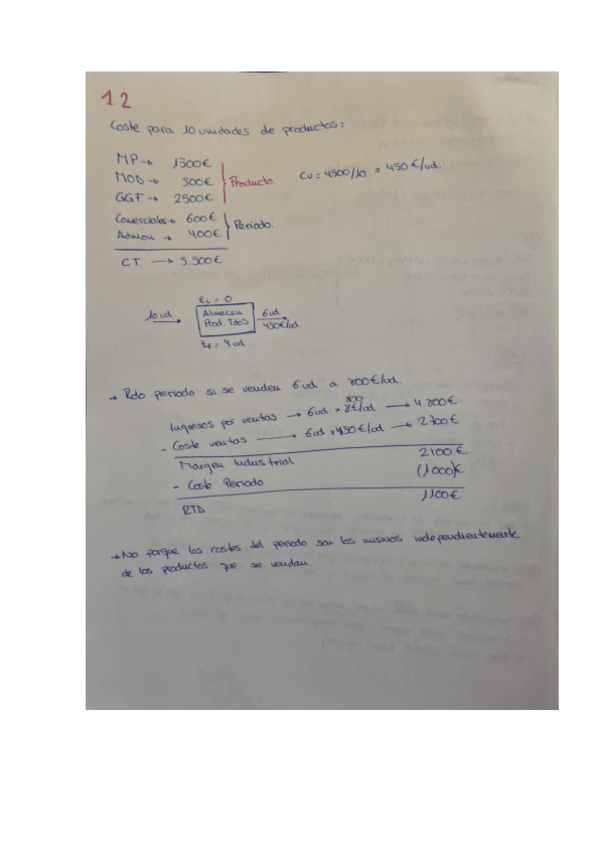 1.2
Coste para 10 unidades de productos:
MP → 1500€
MOD → 500€
GGF → 2500€
Producto.
Cu = 4500/10 = 450€/ud.
Comerciales → 600€
Admon → 400€
Periodo.
CT → 5.500€
Ei = 0
10 ud
Almacen
Prod. Tdos
6ud
450€/ud.
Ef = 4 ud
→ Rdo periodo si se venden 6 ud a 800€/ud.
800
Ingresos por ventas → 6ud × 8€/ud → 4.800€
- Coste ventas → 6ud × 450€/ud → 2.700€
Margen Industrial 2100€
- Coste Periodo (1000)€
RTD 1100€
→ No porque los costes del periodo son los mismos independientemente
de los productos que se vendan.